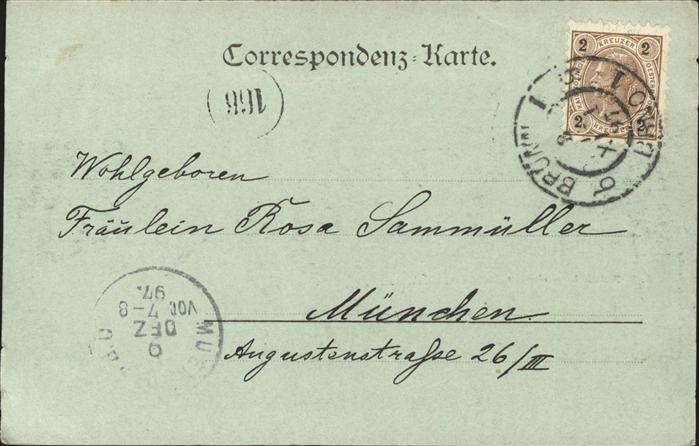 Correspondenz-Karte.
2 KREUZER 2
2 2
166
BRÜNN 1
Wohlgeboren
Fräulein Rosa Sammüller
München
Augustenstraße 26/III
9
DEZ
VOR. 7-8
97.